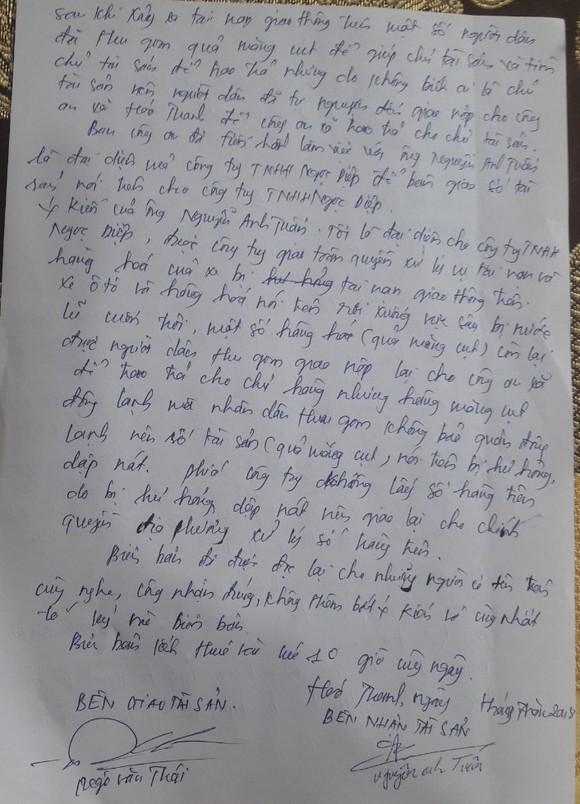 sau khi xảy ra tai nạn giao thông trên một số người dân
đã thu gom quả măng cụt để giúp chủ tài sản và tìm
chủ tài sản để trao trả nhưng do không biết ai là chủ
tài sản nên người dân đã tự nguyện đến giao nộp cho công
an xã Hoá Thanh để công an xã trao trả cho chủ tài sản.
Ban công an đã tiến hành làm việc với ông Nguyễn Anh Tuấn
là đại diện của công ty TNHH Ngọc Diệp để bàn giao số tài
sản nói trên cho công ty TNHH Ngọc Diệp.
Ý kiến của ông Nguyễn Anh Tuấn: Tôi là đại diện cho công ty TNHH
Ngọc Diệp, được công ty giao toàn quyền xử lý vụ tai nạn và
hàng hoá của xe bị hư hỏng tai nạn giao thông trên.
Xe ô tô và hàng hoá nói trên rơi xuống vực sâu bị nước
lũ cuốn trôi, một số hàng hoá (quả măng cụt) còn lại
được người dân thu gom giao nộp lại cho công an xã
để trao trả cho chủ hàng nhưng hàng măng cụt
đông lạnh mà nhân dân thu gom không bảo quản đông
lạnh nên số tài sản (quả măng cụt) nói trên bị hư hỏng,
dập nát. phía công ty không lấy số hàng trên
do bị hư hỏng dập nát nên giao lại cho chính
quyền địa phương xử lý số hàng trên.
Biên bản đã được đọc lại cho những người có tên trên
cùng nghe, công nhận đúng, không thêm bớt ý kiến và cùng nhất
trí ký vào biên bản.
Biên bản kết thúc vào lúc 10 giờ cùng ngày.
Hoá Thanh, ngày tháng năm 2018
BÊN GIAO TÀI SẢN. BÊN NHẬN TÀI SẢN
Ngô Văn Thái Nguyễn Anh Tuấn